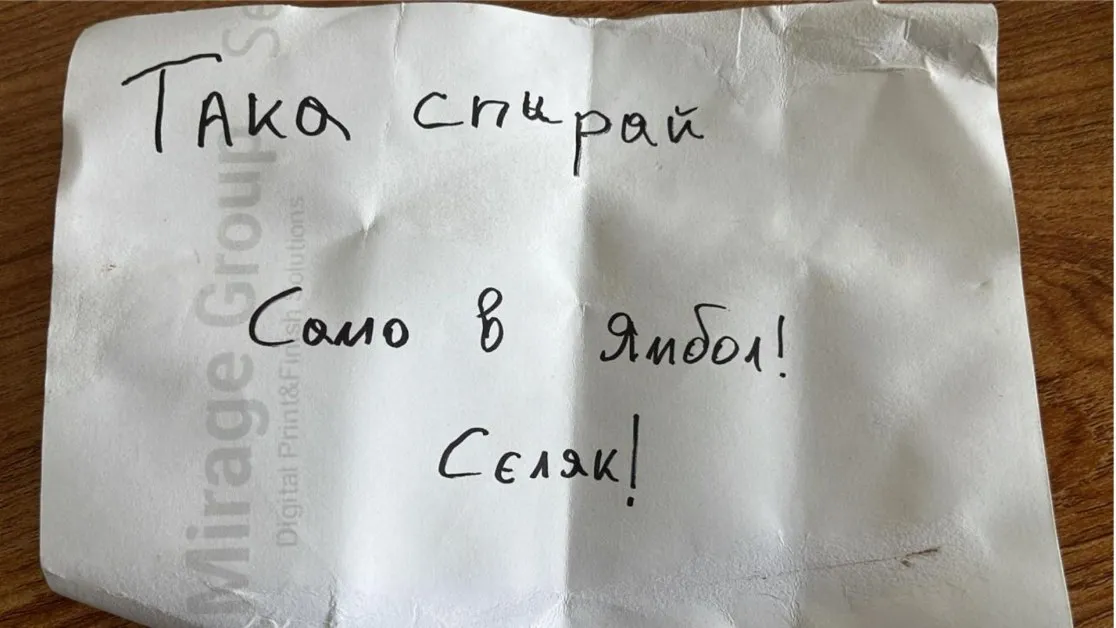 Така спирай
Само в Ямбол!
Селяк!
Mirage Group Se
Digital Print&Finish Solutions